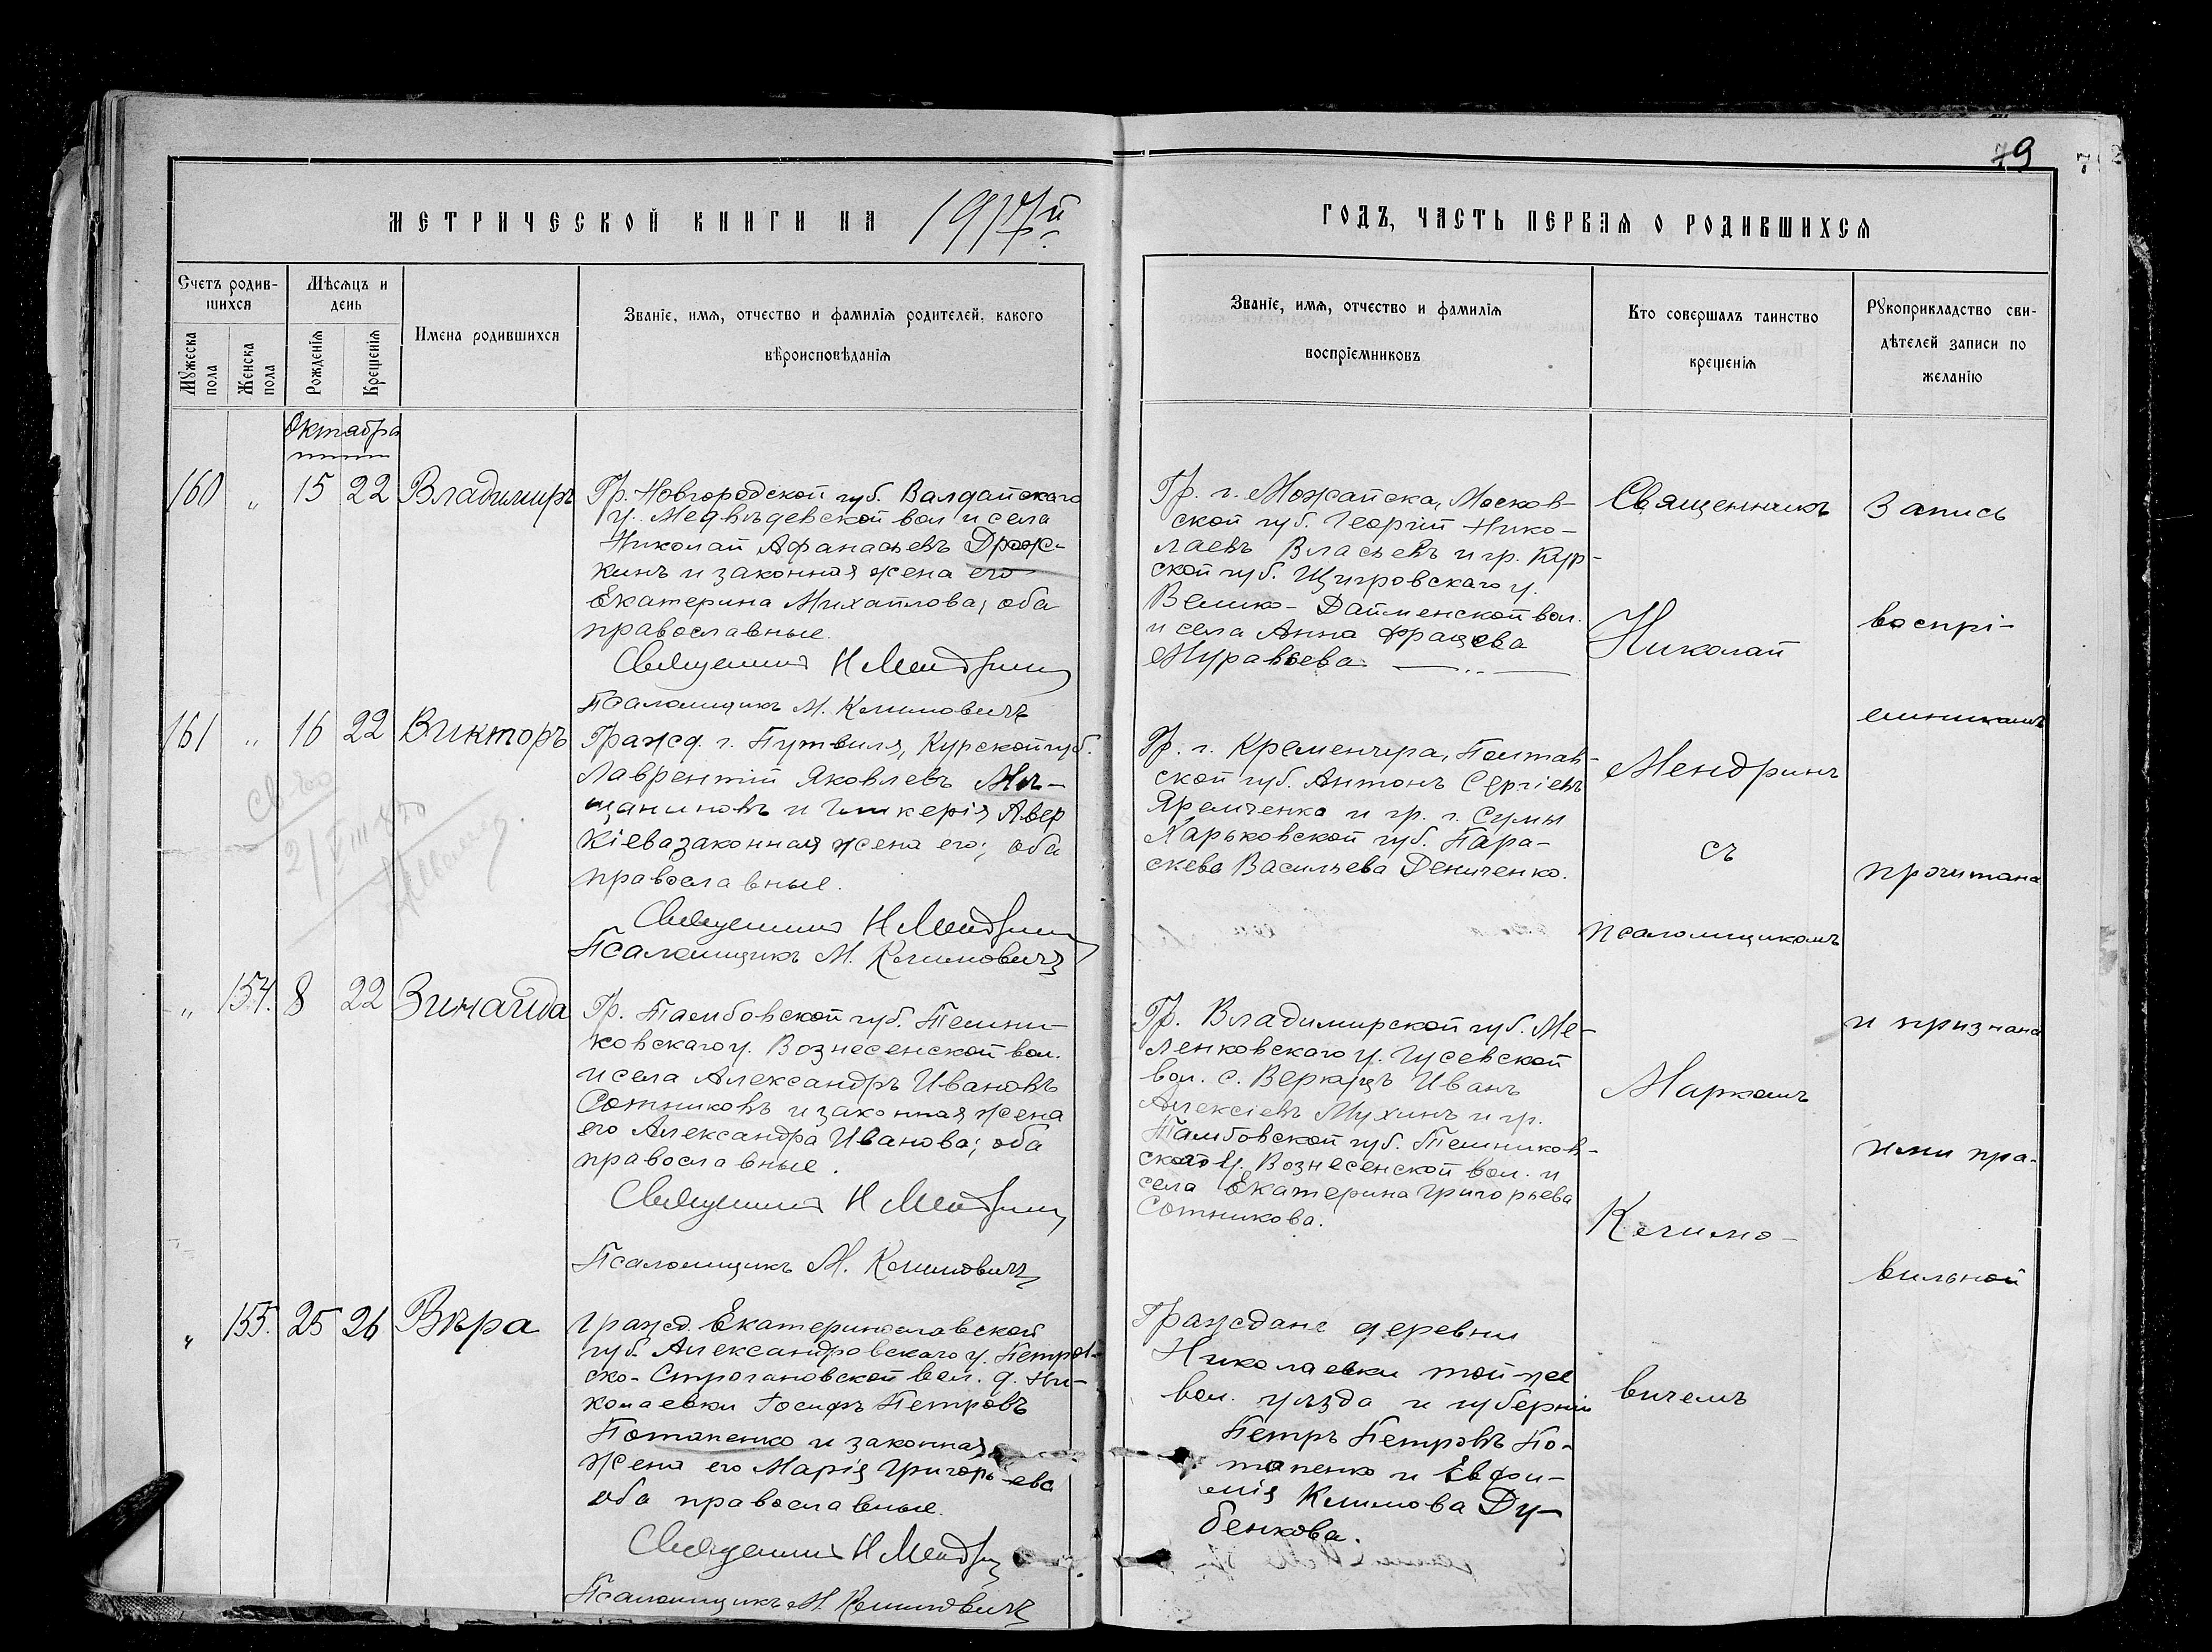 79
МЕТРИЧЕСКОЙ КНИГИ НА 1917й
ГОДЪ, ЧАСТЬ ПЕРВАЯ О РОДИВШИХСЯ
Счетъ родив-
шихся
Мѣсяцъ и
день
Мужеска
пола
Женска
пола
Рожденія
Крещенія
Имена родившихся
Званіе, имя, отчество и фамилія родителей, какого
вѣроисповѣданія
Званіе, имя, отчество и фамилія
воспріемниковъ
Кто совершалъ таинство
крещенія
Рукоприкладство сви-
дѣтелей записи по
желанію
Октября
160 " 15 22 Владимиръ
Гр. Новгородской губ. Валдайскаго
у. Медвѣдевской вол. и села
Николай Афанасьевъ Дрож-
кинъ и законная жена его
Екатерина Михайлова; оба
православные.
Священникъ Н Мендринъ
Псаломщикъ М. Климовичъ
Гр. г. Можайска, Москов-
ской губ. Георгій Нико-
лаевъ Власьевъ и гр. Кур-
ской губ. Щигровскаго у.
Велико-Дайменской вол.
и села Анна
Муравьева
161 " 16 22 Викторъ
Гражд. г. Путивля, Курской губ.
Лаврентій Яковлевъ Мѣ-
щаниновъ и Гликерія Авер
кіева законная жена его; оба
православные.
Священникъ Н Мендринъ
Псаломщикъ М. Климовичъ
Гр. г. Кременчуга, Полтав-
ской губ. Антонъ Сергіевъ
Яремченко и гр. г. Сумы
Харьковской губ. Пара-
скева Васильева Дениченко.
" 154. 8 22 Зинаида
Гр. Тамбовской губ. Темни-
ковскаго у. Вознесенской вол.
и села Александръ Ивановъ
Сотниковъ и законная жена
его Александра Иванова; оба
православные.
Священникъ Н Мендринъ
Псаломщикъ М. Климовичъ
Гр. Владимирской губ. Ме-
ленковскаго у. Гусевской
вол. с. Веркуцъ Иванъ
Алексіевъ Мухинъ и гр.
Тамбовской губ. Темников-
скаго у. Вознесенской вол. и
села Екатерина Григорьева
Сотникова.
" 155. 25 26 Вѣра
Гражд. Екатеринославской
губ. Александровскаго у. Петров-
ско-Строгановской вол. д. Ни-
колаевки Іосифъ Петровъ
Потапенко и законная
жена его Марія Григорьева
оба православные.
Священникъ Н Мендринъ
Псаломщикъ М. Климовичъ
Граждане деревни
Николаевки той-же
вол. уѣзда и губерніи
Петръ Петровъ По-
тапенко и Евфи-
мія Климова Ду-
бенкова.
Священникъ
Николай
Мендринъ
съ
псаломщикомъ
Маркомъ
Климо-
вичемъ
Запись
воспрі-
емникамъ
прочитана
и признана
ими пра-
вильной